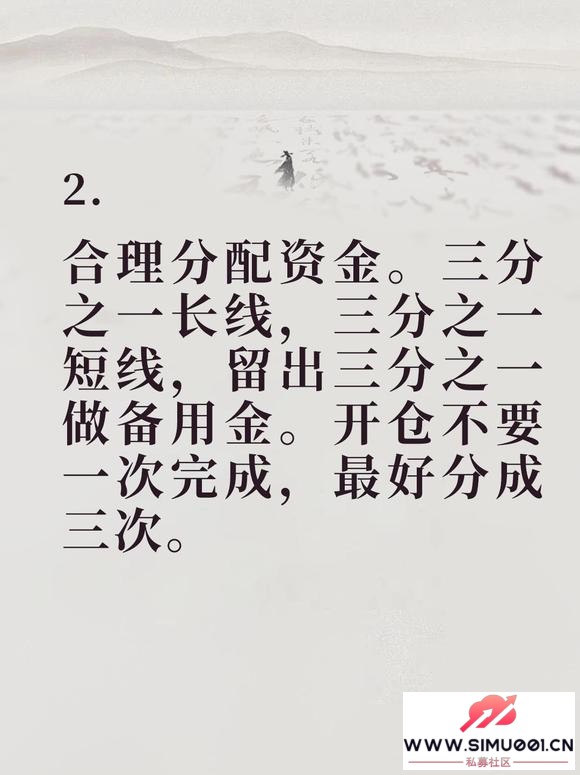 2.
合理分配资金。三分
之一长线，三分之一
短线，留出三分之一
做备用金。开仓不要
一次完成，最好分成
三次。
WWW.SIMU001.CN
私募社区